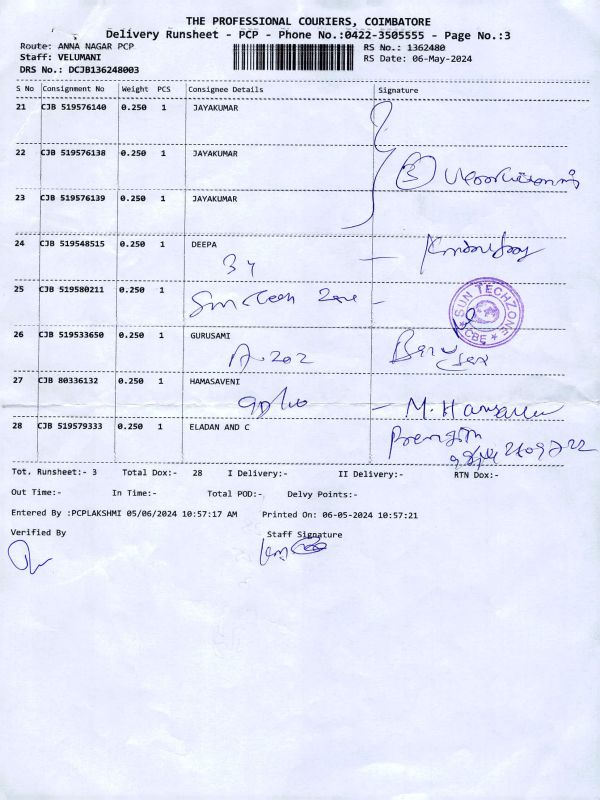 THE PROFESSIONAL COURIERS, COIMBATORE
Delivery Runsheet - PCP - Phone No.:0422-3505555 - Page No.:3
Route: ANNA NAGAR PCP RS No.: 1362480
Staff: VELUMANI RS Date: 06-May-2024
DRS No.: DCJB136248003
S No Consignment No Weight PCS Consignee Details Signature
21 CJB 519576140 0.250 1 JAYAKUMAR
22 CJB 519576138 0.250 1 JAYAKUMAR
23 CJB 519576139 0.250 1 JAYAKUMAR
24 CJB 519548515 0.250 1 DEEPA
34
25 CJB 519580211 0.250 1
SUN TECHZONE
* CBE *
26 CJB 519533650 0.250 1 GURUSAMI
A-202
27 CJB 80336132 0.250 1 HAMASAVENI
28 CJB 519579333 0.250 1 ELADAN AND C
Tot. Runsheet:- 3 Total Dox:- 28 I Delivery:- II Delivery:- RTN Dox:-
Out Time:- In Time:- Total POD:- Delvy Points:-
Entered By :PCPLAKSHMI 05/06/2024 10:57:17 AM Printed On: 06-05-2024 10:57:21
Verified By Staff Signature